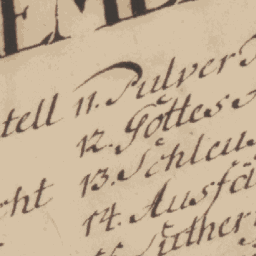 EME
tell 11. Pulver
12. Gottes
cht 13. Schleus
14. Ausfä
15. Luther